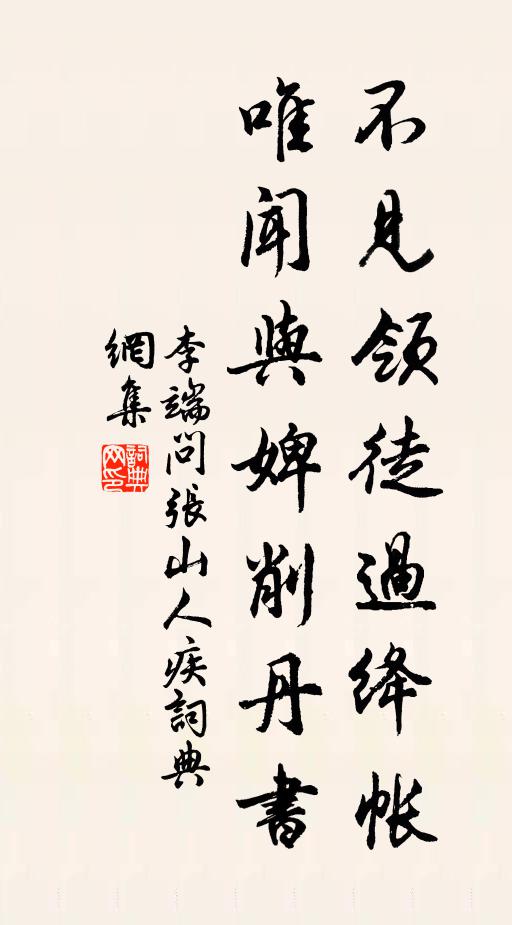 不見領徒過絳帳
唯聞與婢削丹書
李端問張山人疾詞典
網集
詞典網印